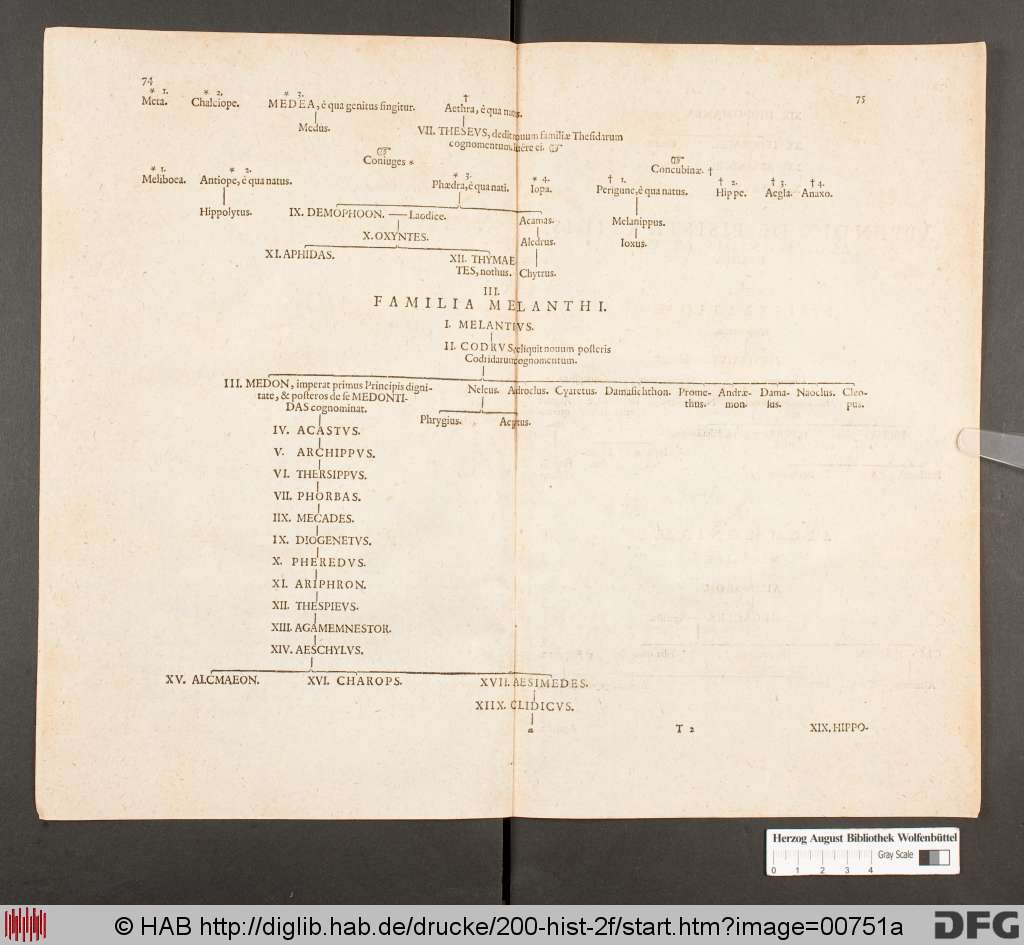 74
75
* 1. * 2. * 3. †
Meta. Chalciope. MEDEA, è qua genitus fingitur. Aethra, è qua natus.
Medus. VII. THESEVS, dedit nouum familiæ Thesidarum
cognomentum. fuêre ei.
Coniuges * Concubinæ. †
* 1. * 2. * 3. * 4. † 1. † 2. † 3. † 4.
Meliboca. Antiope, è qua natus. Phædra, è qua nati. Iopa. Perigune, è qua natus. Hippe. Aegla. Anaxo.
Hippolytus. IX. DEMOPHOON. Laodice. Acamas. Melanippus.
X. OXYNTES. Aledrus. Ioxus.
XI. APHIDAS. XII. THYMAE
TES, nothus. Chytrus.
III.
FAMILIA MELANTHI.
I. MELANTIVS.
II. CODRVS, reliquit nouum posteris
Codridarum cognomentum.
III. MEDON, imperat primus Principis digni- Neleus. Adroclus. Cyaretus. Damasichthon. Prome- Andræ- Dama- Naoclus. Cleo-
tate, & posteros de se MEDONTI- thus. mon. sus. pus.
DAS cognominat. Phrygius. Acptus.
IV. ACASTVS.
V. ARCHIPPVS.
VI. THERSIPPVS.
VII. PHORBAS.
IIX. MECADES.
IX. DIOGENETVS.
X. PHEREDVS.
XI. ARIPHRON.
XII. THESPIEVS.
XIII. AGAMEMNESTOR.
XIV. AESCHYLVS.
XV. ALCMAEON. XVI. CHAROPS. XVII. AESIMEDES.
XIIX. CLIDICVS.
a T 2 XIX. HIPPO-
Herzog August Bibliothek Wolfenbüttel
Gray Scale
0 1 2 3 4
© HAB http://diglib.hab.de/drucke/200-hist-2f/start.htm?image=00751a
DFG